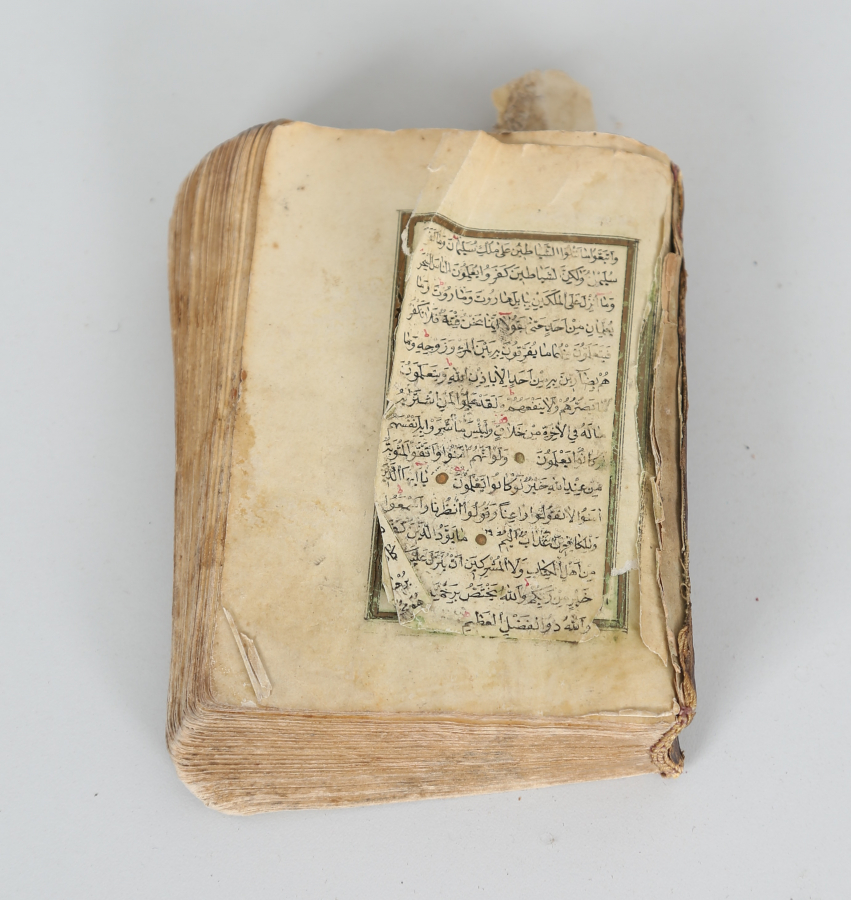 واتبعوا الشياطين على ملك سليمان وما كفر
سليمن ولكن الشياطين كفروا يعلمون الناس السحر
وما انزل على الملكين ببابل هاروت وماروت وما
يعلمان من احد حتى يقولا انما نحن فتنة فلا تكفر
فيتعلمون منهما ما يفرقون به بين المرء وزوجه وما
هم بضارين به من احد الا باذن الله ويتعلمون
يضرهم ولا ينفعهم ولقد علموا لمن اشتريه
ماله في الاخرة من خلاق ولبئس ما شروا به انفسهم
يعلمون ولو انهم امنوا واتقوا لمثوبة
من عند الله خير لو كانوا يعلمون يا ايها الذ
امنوا لا تقولوا راعنا وقولوا انظرنا واسمعوا
وللكافرين عذاب اليم ما يود الذين كفر
من اهل الكتاب ولا المشركين ان ينزل عليكم
خير من ربكم والله يختص برحمته
والله ذو الفضل العظيم